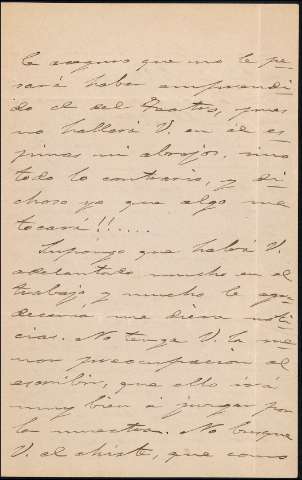 Le aseguro que no le pe-
sará haber emprendi-
do el del Teatro, pues
no hallará V. en él es-
pinas ni abrojos, sino
todo lo contrario, y di-
choso yo que algo me
tocará!!.....
Supongo que habrá V.
adelantado mucho en el
trabajo y mucho le agra-
decería me diera noti-
cias. No tenga V. la me-
nor preocupacion al
escribir, que ello irá
muy bien á juzgar por
la muestra. No busque
V. el chiste, que como